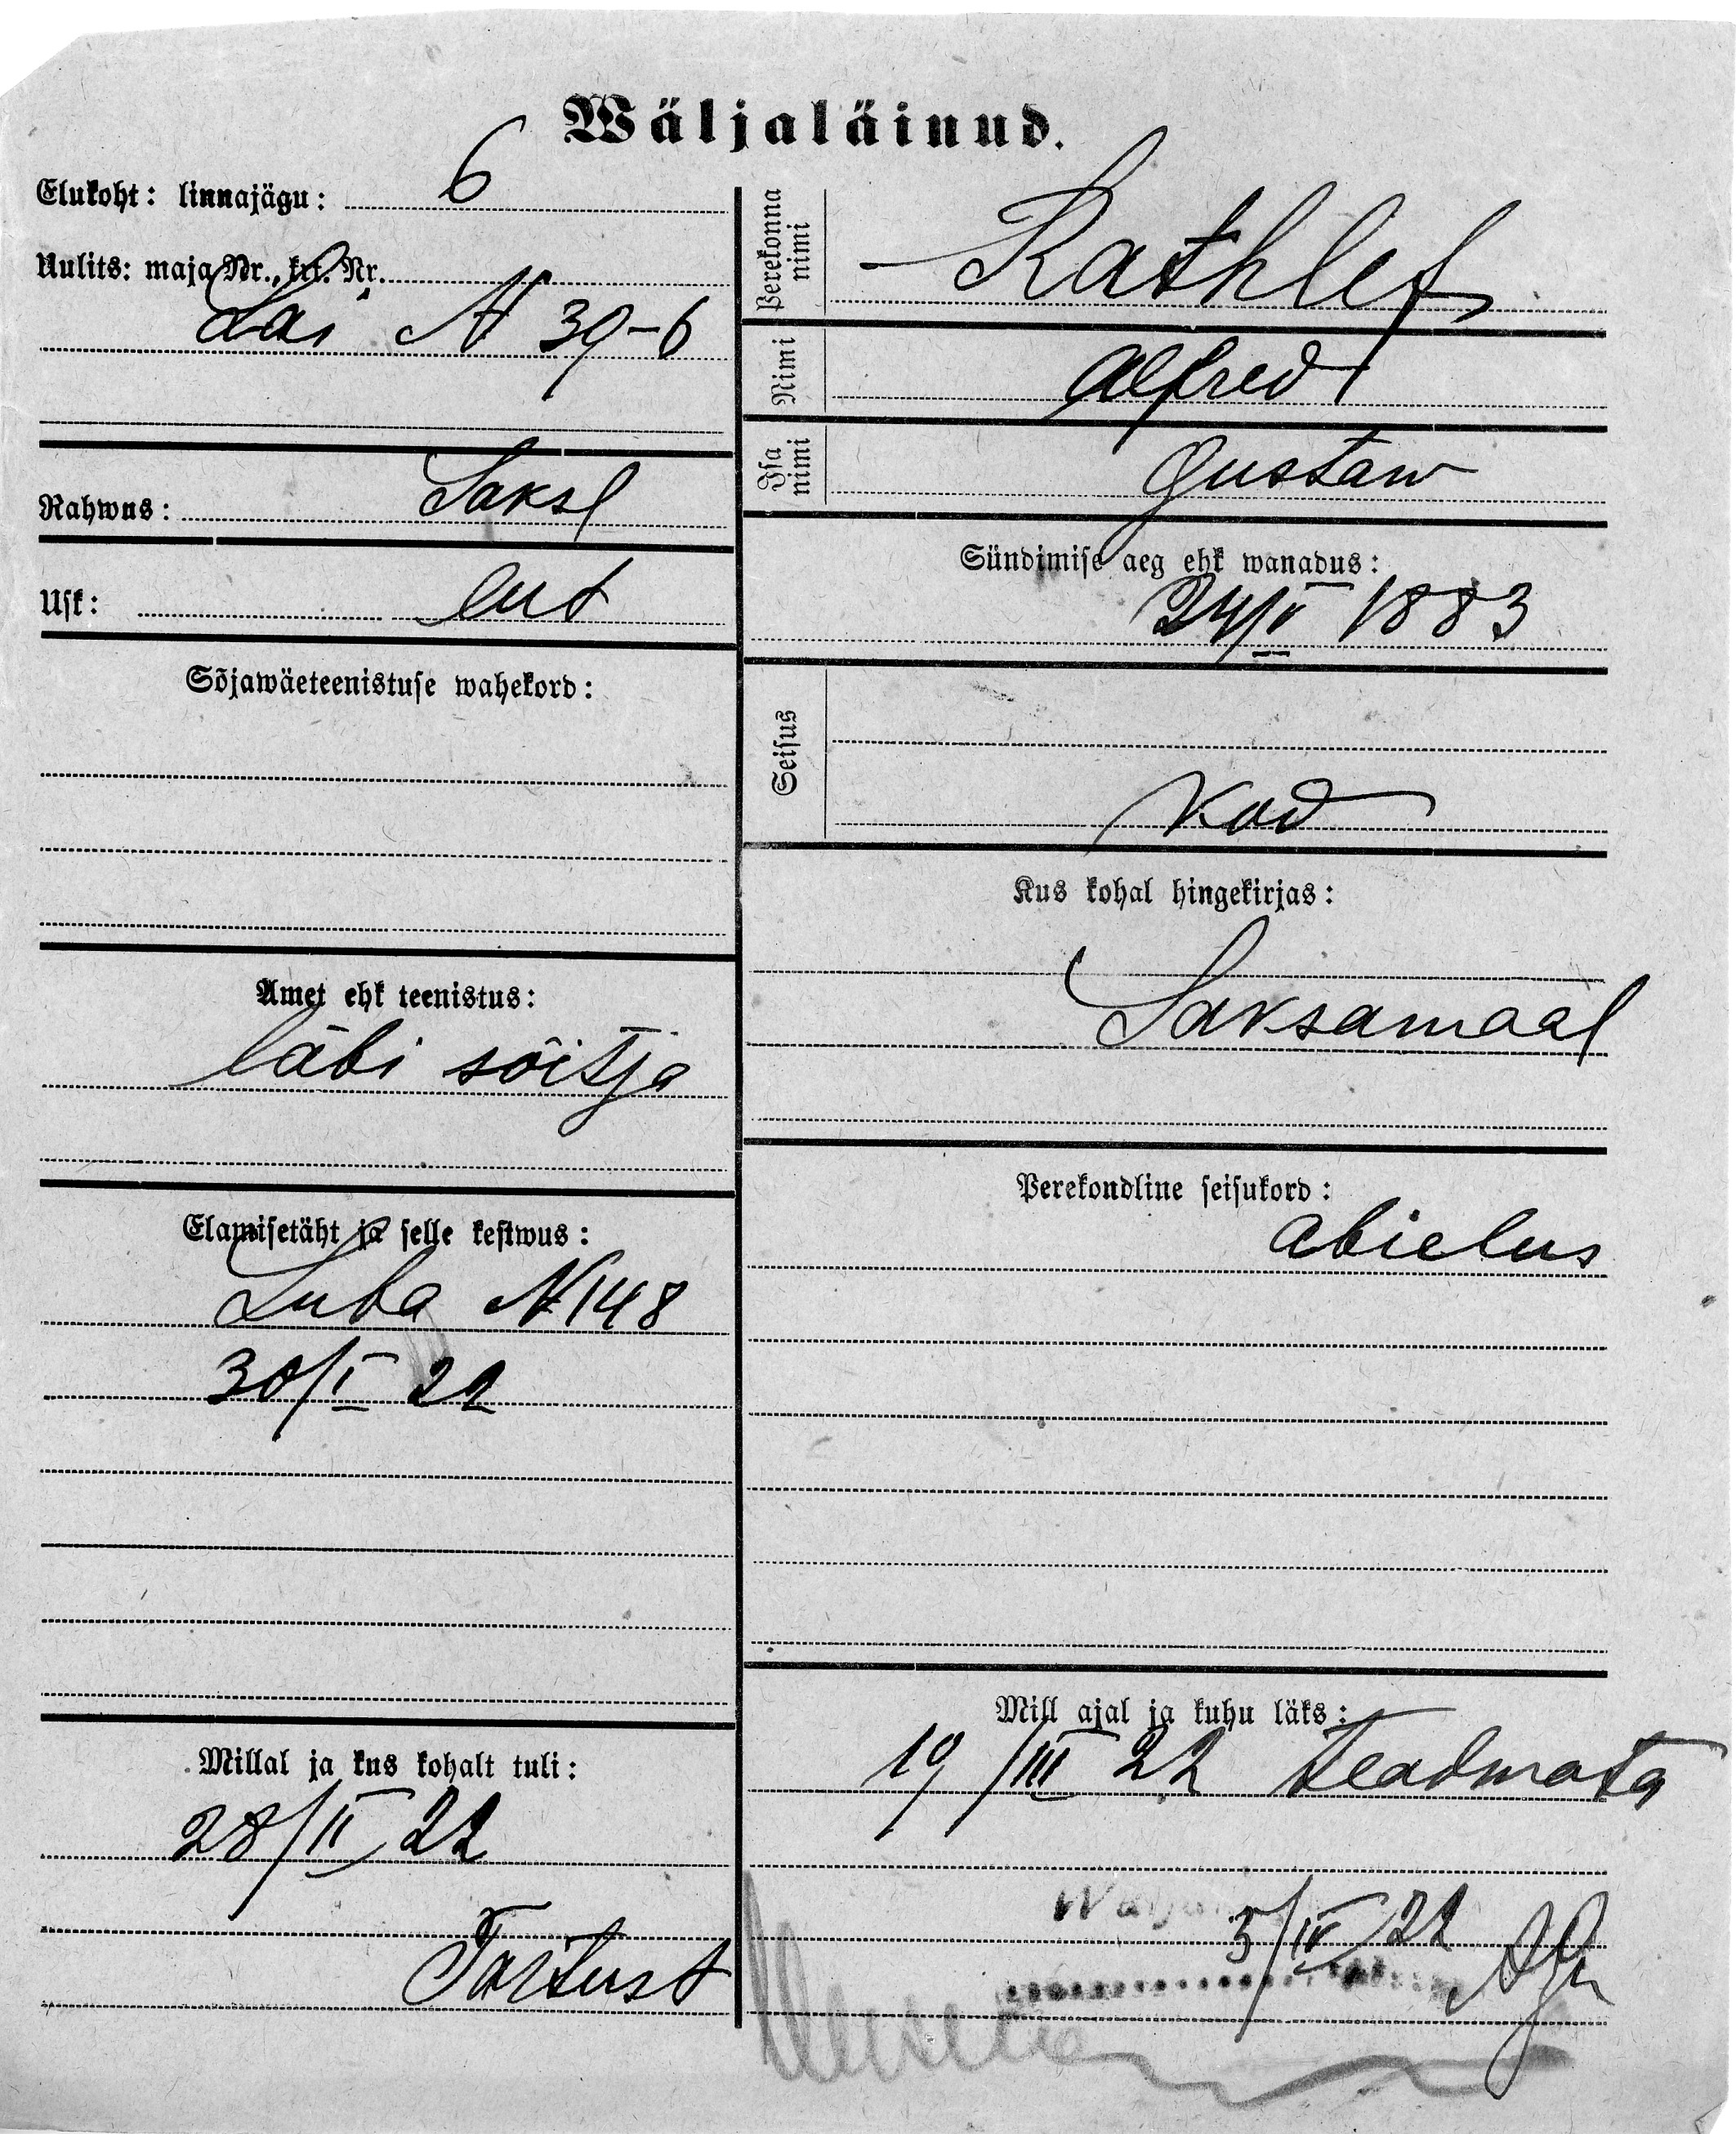 Wäljaläinud.
Elukoht: linnajägu: 6
Uulits: maja Nr., krt. Nr.
Lai № 39-6
Rahwus: Saksl
Usk: lut
Sõjawäeteenistuse wahekord:
Amet ehk teenistus:
läbi sõitja
Elamisetäht ja selle kestwus:
Luba № 148
30/I 22
Millal ja kus kohalt tuli:
28/II 22
Tartust
Perekonna nimi Rathlef
Nimi Alfred
Isa nimi Gustaw
Sündimise aeg ehk wanadus:
1883
Seisus
Kod
Kus kohal hingekirjas:
Saksamaal
Perekondline seisukord:
abielus
Mill ajal ja kuhu läks:
19/III 22 teadmata
5/IV 22